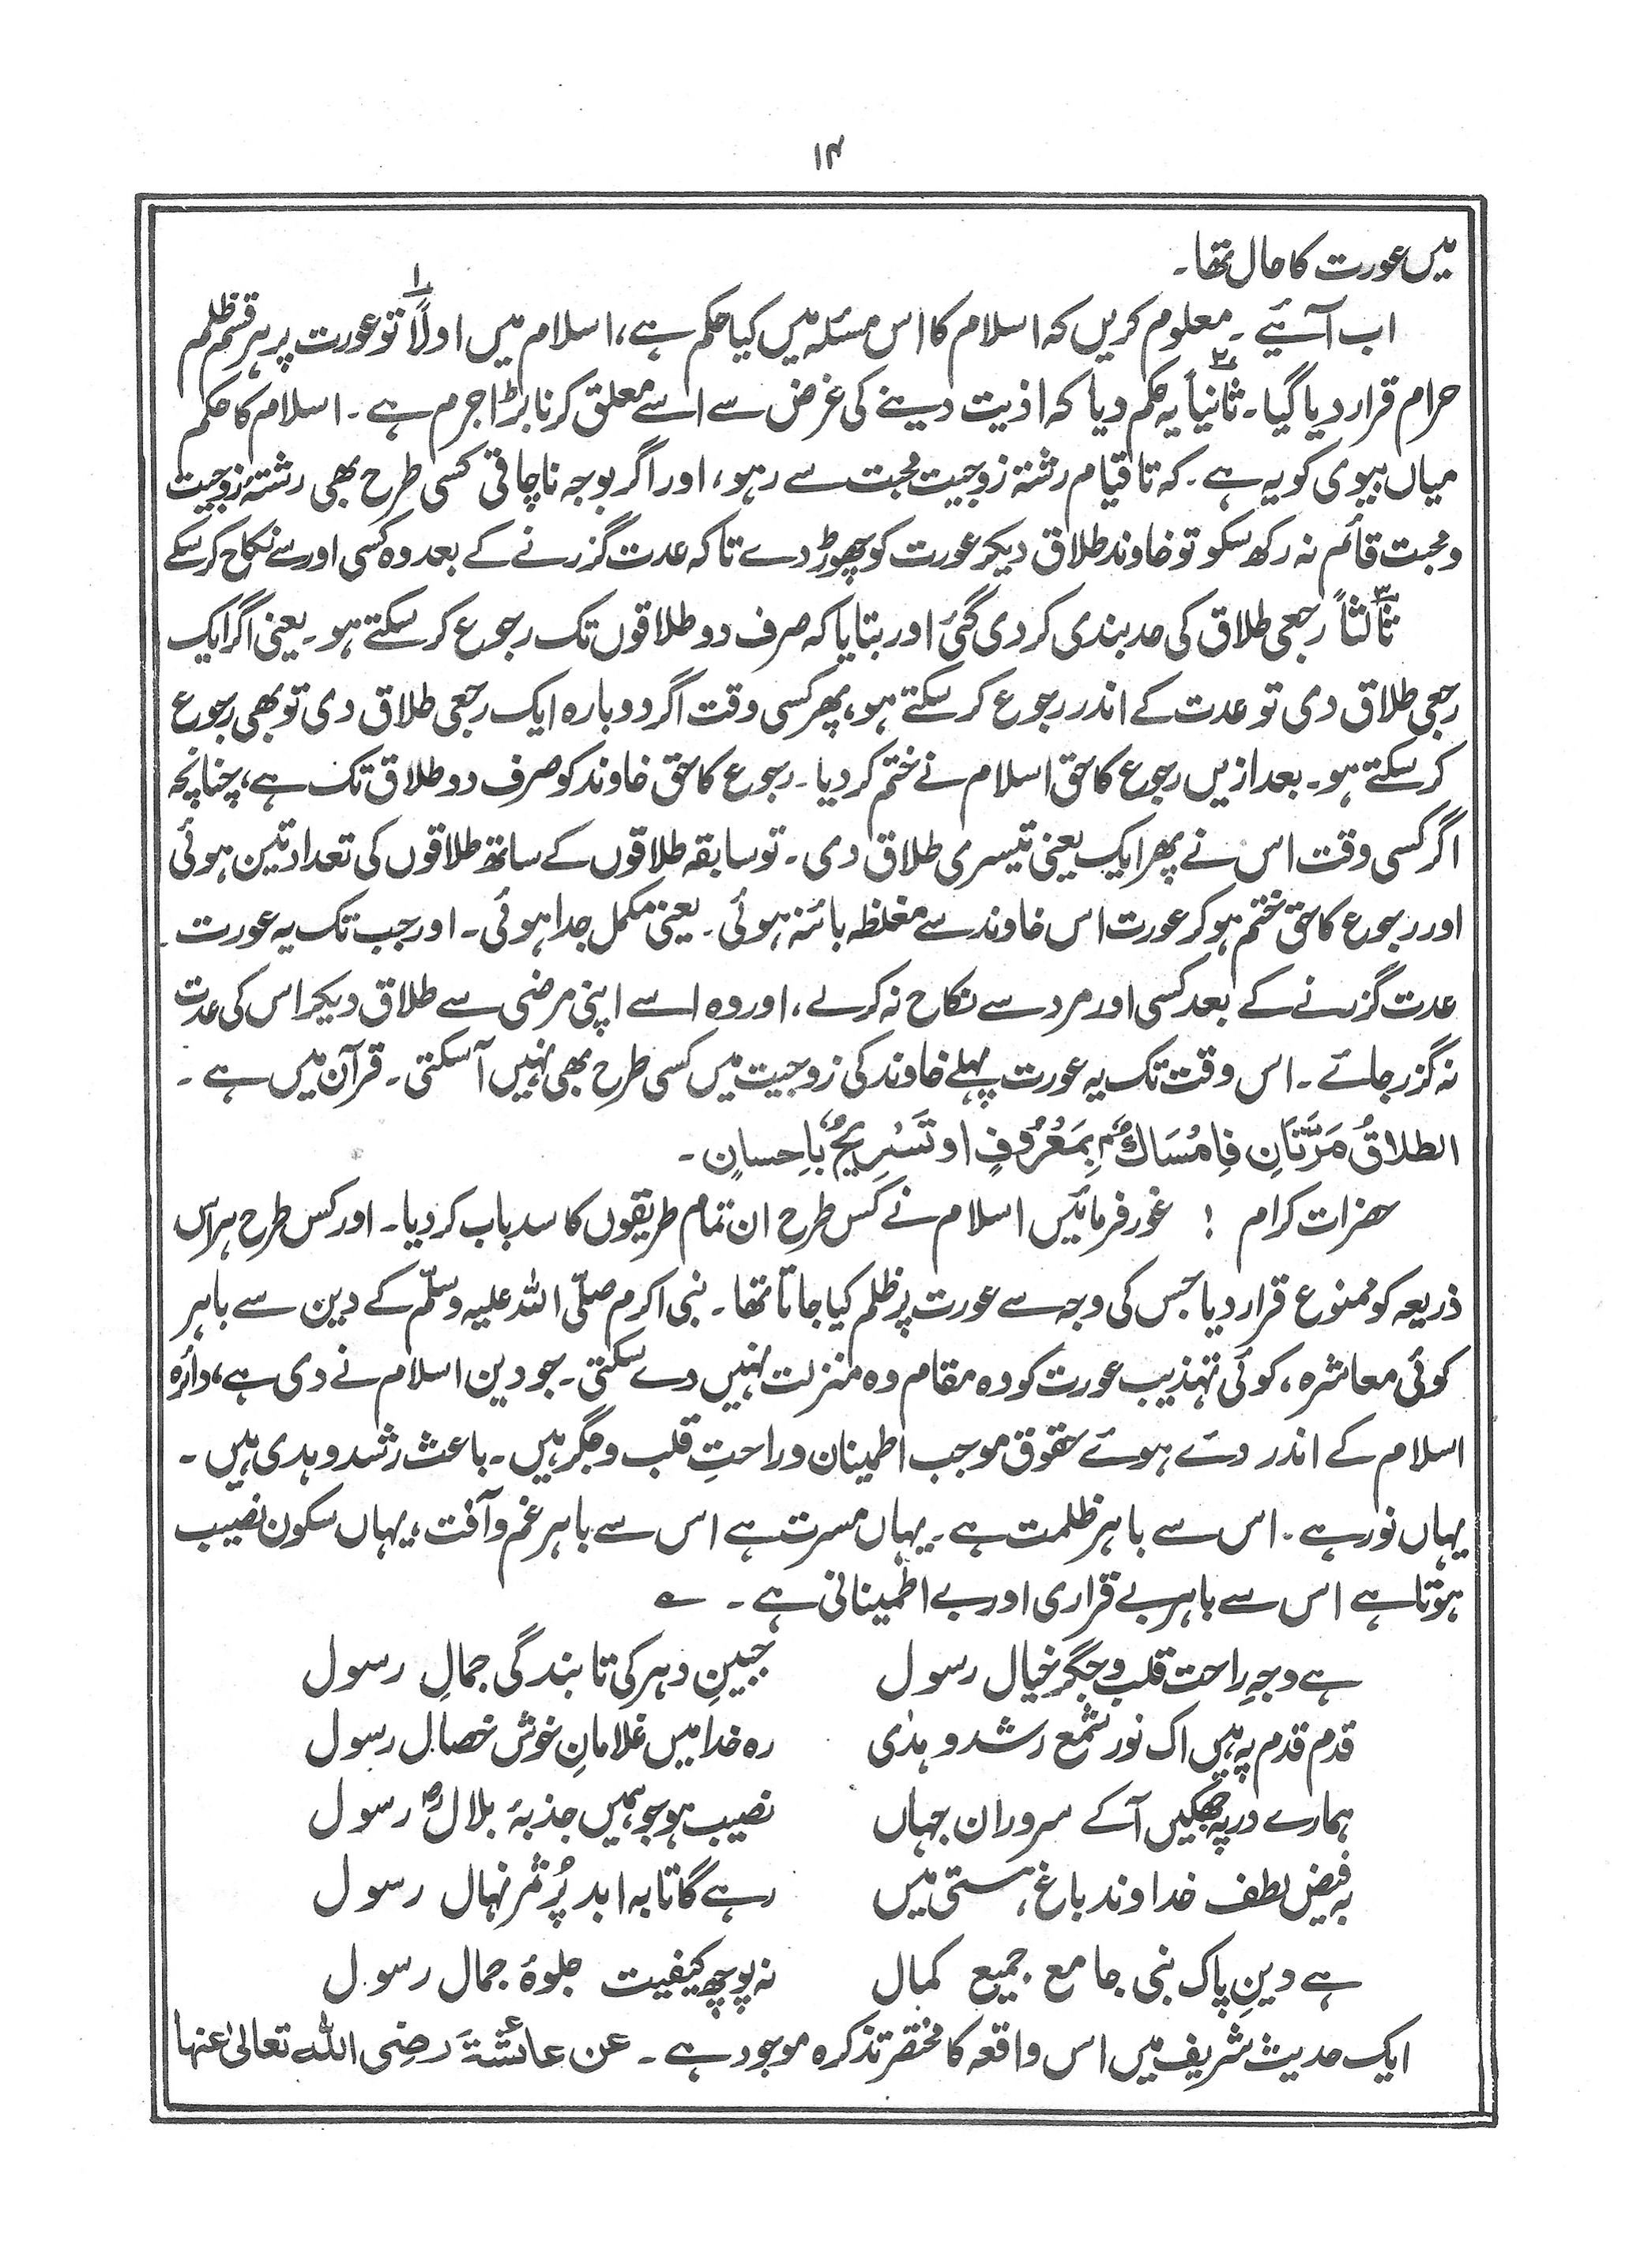 ۱۴
میں عورت کا حال تھا۔
اب آئیے ۔ معلوم کریں کہ اسلام کا اس مسئلہ میں کیا حکم ہے، اسلام میں اولاً ۱ تو عورت پر ہر قسم ظلم
حرام قرار دیا گیا۔ ثانیاً ۲ یہ حکم دیا کہ اذیت دینے کی غرض سے اسے معلق کرنا بڑا جرم ہے ۔ اسلام کا حکم
میاں بیوی کو یہ ہے ۔ کہ تا قیام رشتہ زوجیت محبت سے رہو، اور اگر بوجہ ناچاقی کسی طرح بھی رشتۂ زوجیت
و محبت قائم نہ رکھ سکو تو خاوند طلاق دیکر عورت کو چھوڑ دے تاکہ عدت گزرنے کے بعد وہ کسی اور سے نکاح کر سکے
ثالثاً ۳ رجعی طلاق کی حد بندی کر دی گئی اور بتایا کہ صرف دو طلاقوں تک رجوع کر سکتے ہو۔ یعنی اگر ایک
رجعی طلاق دی تو عدت کے اندر رجوع کر سکتے ہو، پھر کسی وقت اگر دوبارہ ایک رجعی طلاق دی تو بھی رجوع
کر سکتے ہو۔ بعد ازیں رجوع کا حق اسلام نے ختم کر دیا۔ رجوع کا حق خاوند کو صرف دو طلاق تک ہے، چنانچہ
اگر کسی وقت اس نے پھر ایک یعنی تیسری طلاق دی ۔ تو سابقہ طلاقوں کے ساتھ طلاقوں کی تعداد تین ہوئی
اور رجوع کا حق ختم ہو کر عورت اس خاوند سے مغلظہ بائنہ ہوئی۔ یعنی مکمل جدا ہوئی۔ اور جب تک یہ عورت
عدت گزرنے کے بعد کسی اور مرد سے نکاح نہ کرلے، اور وہ اسے اپنی مرضی سے طلاق دیکر اس کی عدت
نہ گزر جائے ۔ اس وقت تک یہ عورت پہلے خاوند کی زوجیت میں کسی طرح بھی نہیں آسکتی۔ قرآن میں ہے ۔
الطلاقُ مَرَّتَانِ فَاِمْسَاكٌ بِمَعْرُوفٍ او تَسْرِيحٌ بِاِحسانٍ ۔
حضرات کرام ! غور فرمائیں اسلام نے کس طرح ان تمام طریقوں کا سد باب کر دیا۔ اور کس طرح ہر اس
ذریعہ کو ممنوع قرار دیا جس کی وجہ سے عورت پر ظلم کیا جاتا تھا۔ نبی اکرم صلّی اللہ علیہ وسلّم کے دین سے باہر
کوئی معاشرہ، کوئی تہذیب عورت کو وہ مقام وہ منزلت نہیں دے سکتی۔ جو دین اسلام نے دی ہے، دائرہ
اسلام کے اندر دئے ہوئے حقوق موجب اطمینان و راحتِ قلب و جگر ہیں۔ باعث رشد و ہدی ہیں ۔
یہاں نور ہے ۔ اس سے باہر ظلمت ہے ۔ یہاں مسرت ہے اس سے باہر غم و آفت، یہاں سکون نصیب
ہوتا ہے اس سے باہر بے قراری اور بے اطمینانی ہے ۔ ؎
ہے وجہِ راحت قلب و جگر خیال رسول جبینِ دہر کی تابندگی جمالِ رسول
قدم قدم پہ ہیں اک نور شمع رشد و ہدٰی رہ خدا میں غلامانِ خوش خصال رسول
ہمارے در پہ جھکیں آکے سروران جہاں نصیب ہو جو ہمیں جذبۂ بلالؓ رسول
بہ فیض لطف خداوند باغ ہستی میں رہے گا تا بہ ابد پُر ثمر نہال رسول
ہے دینِ پاک نبی جامع جمیع کمال نہ پوچھ کیفیت جلوۂ جمال رسول
ایک حدیث شریف میں اس واقعہ کا مختصر تذکرہ موجود ہے ۔ عن عائشةَ رضِی اللہ تعالیٰ عنہا